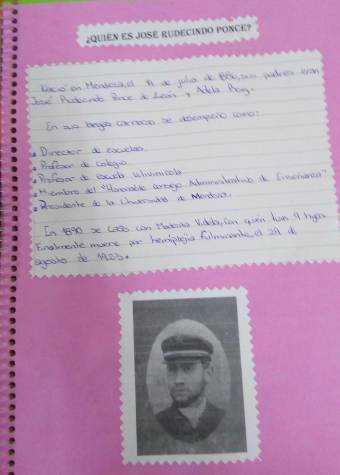 ¿QUIÉN ES JOSÉ RUDECINDO PONCE?
Nació en Mendoza, el de julio de sus padres eran
José Rudecindo Ponce de León y Adela
En sus larga carrera se desempeño como:
Director de escuelas.
Profesor de colegio.
Profesor de escuela Vitivinícola
Miembro del "Honorable Administrativo de Enseñanza"
Presidente de la Universidad de Mendoza.
En 1890 se casó con Videla, con quién tuvo 9 hijos
Finalmente muere por hemiplejia fulminante, el 29 de
agosto de 1923.